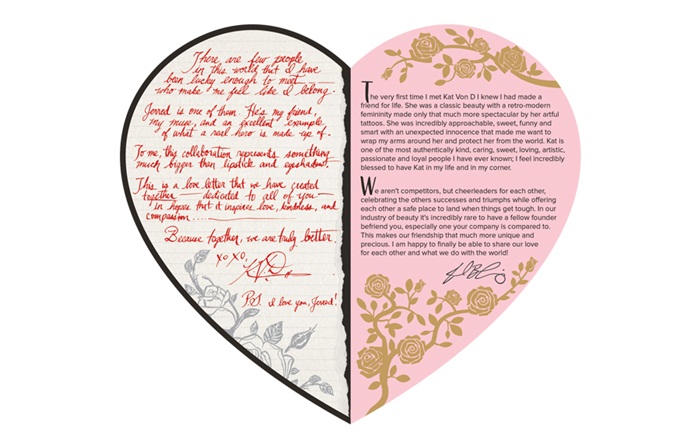 There are few people
in this world that I have
been lucky enough to meet
who make me fell like I belong.
Jerred is one of them. He's my friend,
my muse, and an excellent example
of what a real hero is made up of.
To me, thy collaboration represents something
much bigger than lipstick and eyeshadow.
This is a love letter that we have created
together — dedicated to all of you —
in hopes that it inspires love, kindness, and
compassion....
Because together, we are truly better.
xoxo,
PS I love you, Jerred!
The very first time I met Kat Von D I knew I had made a
friend for life. She was a classic beauty with a retro-modern
femininity made only that much more spectacular by her artful
tattoos. She was incredibly approachable, sweet, funny and
smart with an unexpected innocence that made me want to
wrap my arms around her and protect her from the world. Kat is
one of the most authentically kind, caring, sweet, loving, artistic,
passionate and loyal people I have ever known; I feel incredibly
blessed to have Kat in my life and in my corner.
We aren't competitors, but cheerleaders for each other,
celebrating the others successes and triumphs while offering
each other a safe place to land when things get tough. In our
industry of beauty it's incredibly rare to have a fellow founder
befriend you, especially one your company is compared to.
This makes our friendship that much more unique and
precious. I am happy to finally be able to share our love
for each other and what we do with the world!